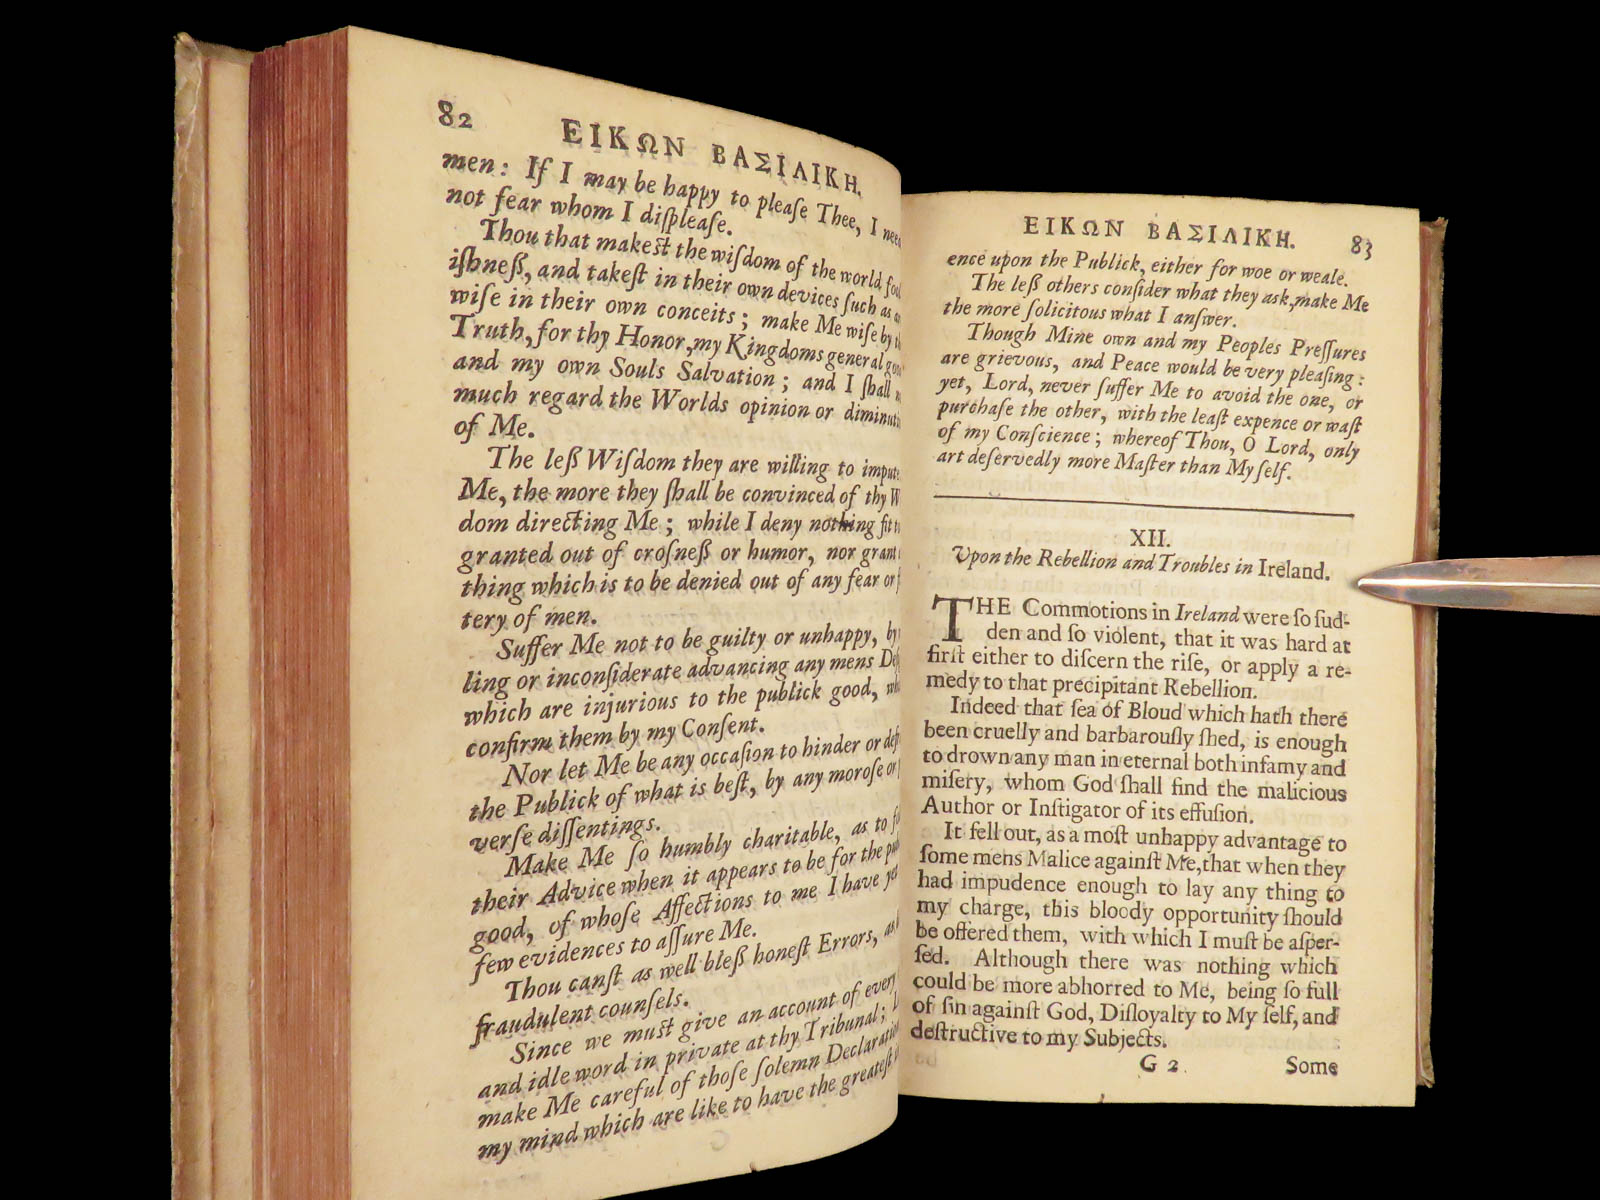 82
ΕΙΚΩΝ ΒΑΣΙΛΙΚΗ.
men: If I may be happy to pleaſe Thee, I
not fear whom I diſpleaſe.
Thou that makeſt the wiſdom of the world
iſhneß, and takeſt in their own devices ſuch as
wiſe in their own conceits; make Me wiſe by
Truth, for thy Honor, my Kingdoms general
and my own Souls Salvation; and I ſhall
much regard the Worlds opinion or
of Me.
The leß Wiſdom they are willing to
Me, the more they ſhall be convinced of thy
dom directing Me; while I deny nothing fit
granted out of croſneß or humor, nor grant
thing which is to be denied out of any fear or
tery of men.
Suffer Me not to be guilty or unhappy,
ling or inconſiderate advancing any mens
which are injurious to the publick good,
confirm them by my Conſent.
Nor let Me be any occaſion to hinder or
the Publick of what is beſt, by any moroſe or
verſe diſſentings.
Make Me ſo humbly charitable, as to
their Advice when it appears to be for the
good, of whoſe Affections to me I have
few evidences to aſſure Me.
Thou canſt as well bleß honeſt Errors, as
fraudulent counſels.
Since we muſt give an account of every
and idle word in private at thy Tribunal;
make Me careful of thoſe ſolemn
my mind which are like to have the greateſt
ΕΙΚΩΝ ΒΑΣΙΛΙΚΗ.
83
ence upon the Publick, either for woe or weale.
The leß others conſider what they ask, make Me
the more ſolicitous what I anſwer.
Though Mine own and my Peoples Preſſures
are grievous, and Peace would be very pleaſing:
yet, Lord, never ſuffer Me to avoid the one, or
purchaſe the other, with the leaſt expence or waſt
of my Conſcience; whereof Thou, O Lord, only
art deſervedly more Maſter than My ſelf.
XII.
Upon the Rebellion and Troubles in Ireland.
THE Commotions in Ireland were ſo ſud-
den and ſo violent, that it was hard at
firſt either to diſcern the riſe, or apply a re-
medy to that precipitant Rebellion.
Indeed that ſea of Bloud which hath there
been cruelly and barbarouſly ſhed, is enough
to drown any man in eternal both infamy and
miſery, whom God ſhall find the malicious
Author or Inſtigator of its effuſion.
It fell out, as a moſt unhappy advantage to
ſome mens Malice againſt Me, that when they
had impudence enough to lay any thing to
my charge, this bloody opportunity ſhould
be offered them, with which I muſt be aſper-
ſed. Although there was nothing which
could be more abhorred to Me, being ſo full
of ſin againſt God, Diſloyalty to My ſelf, and
deſtructive to my Subjects.
G 2
Some